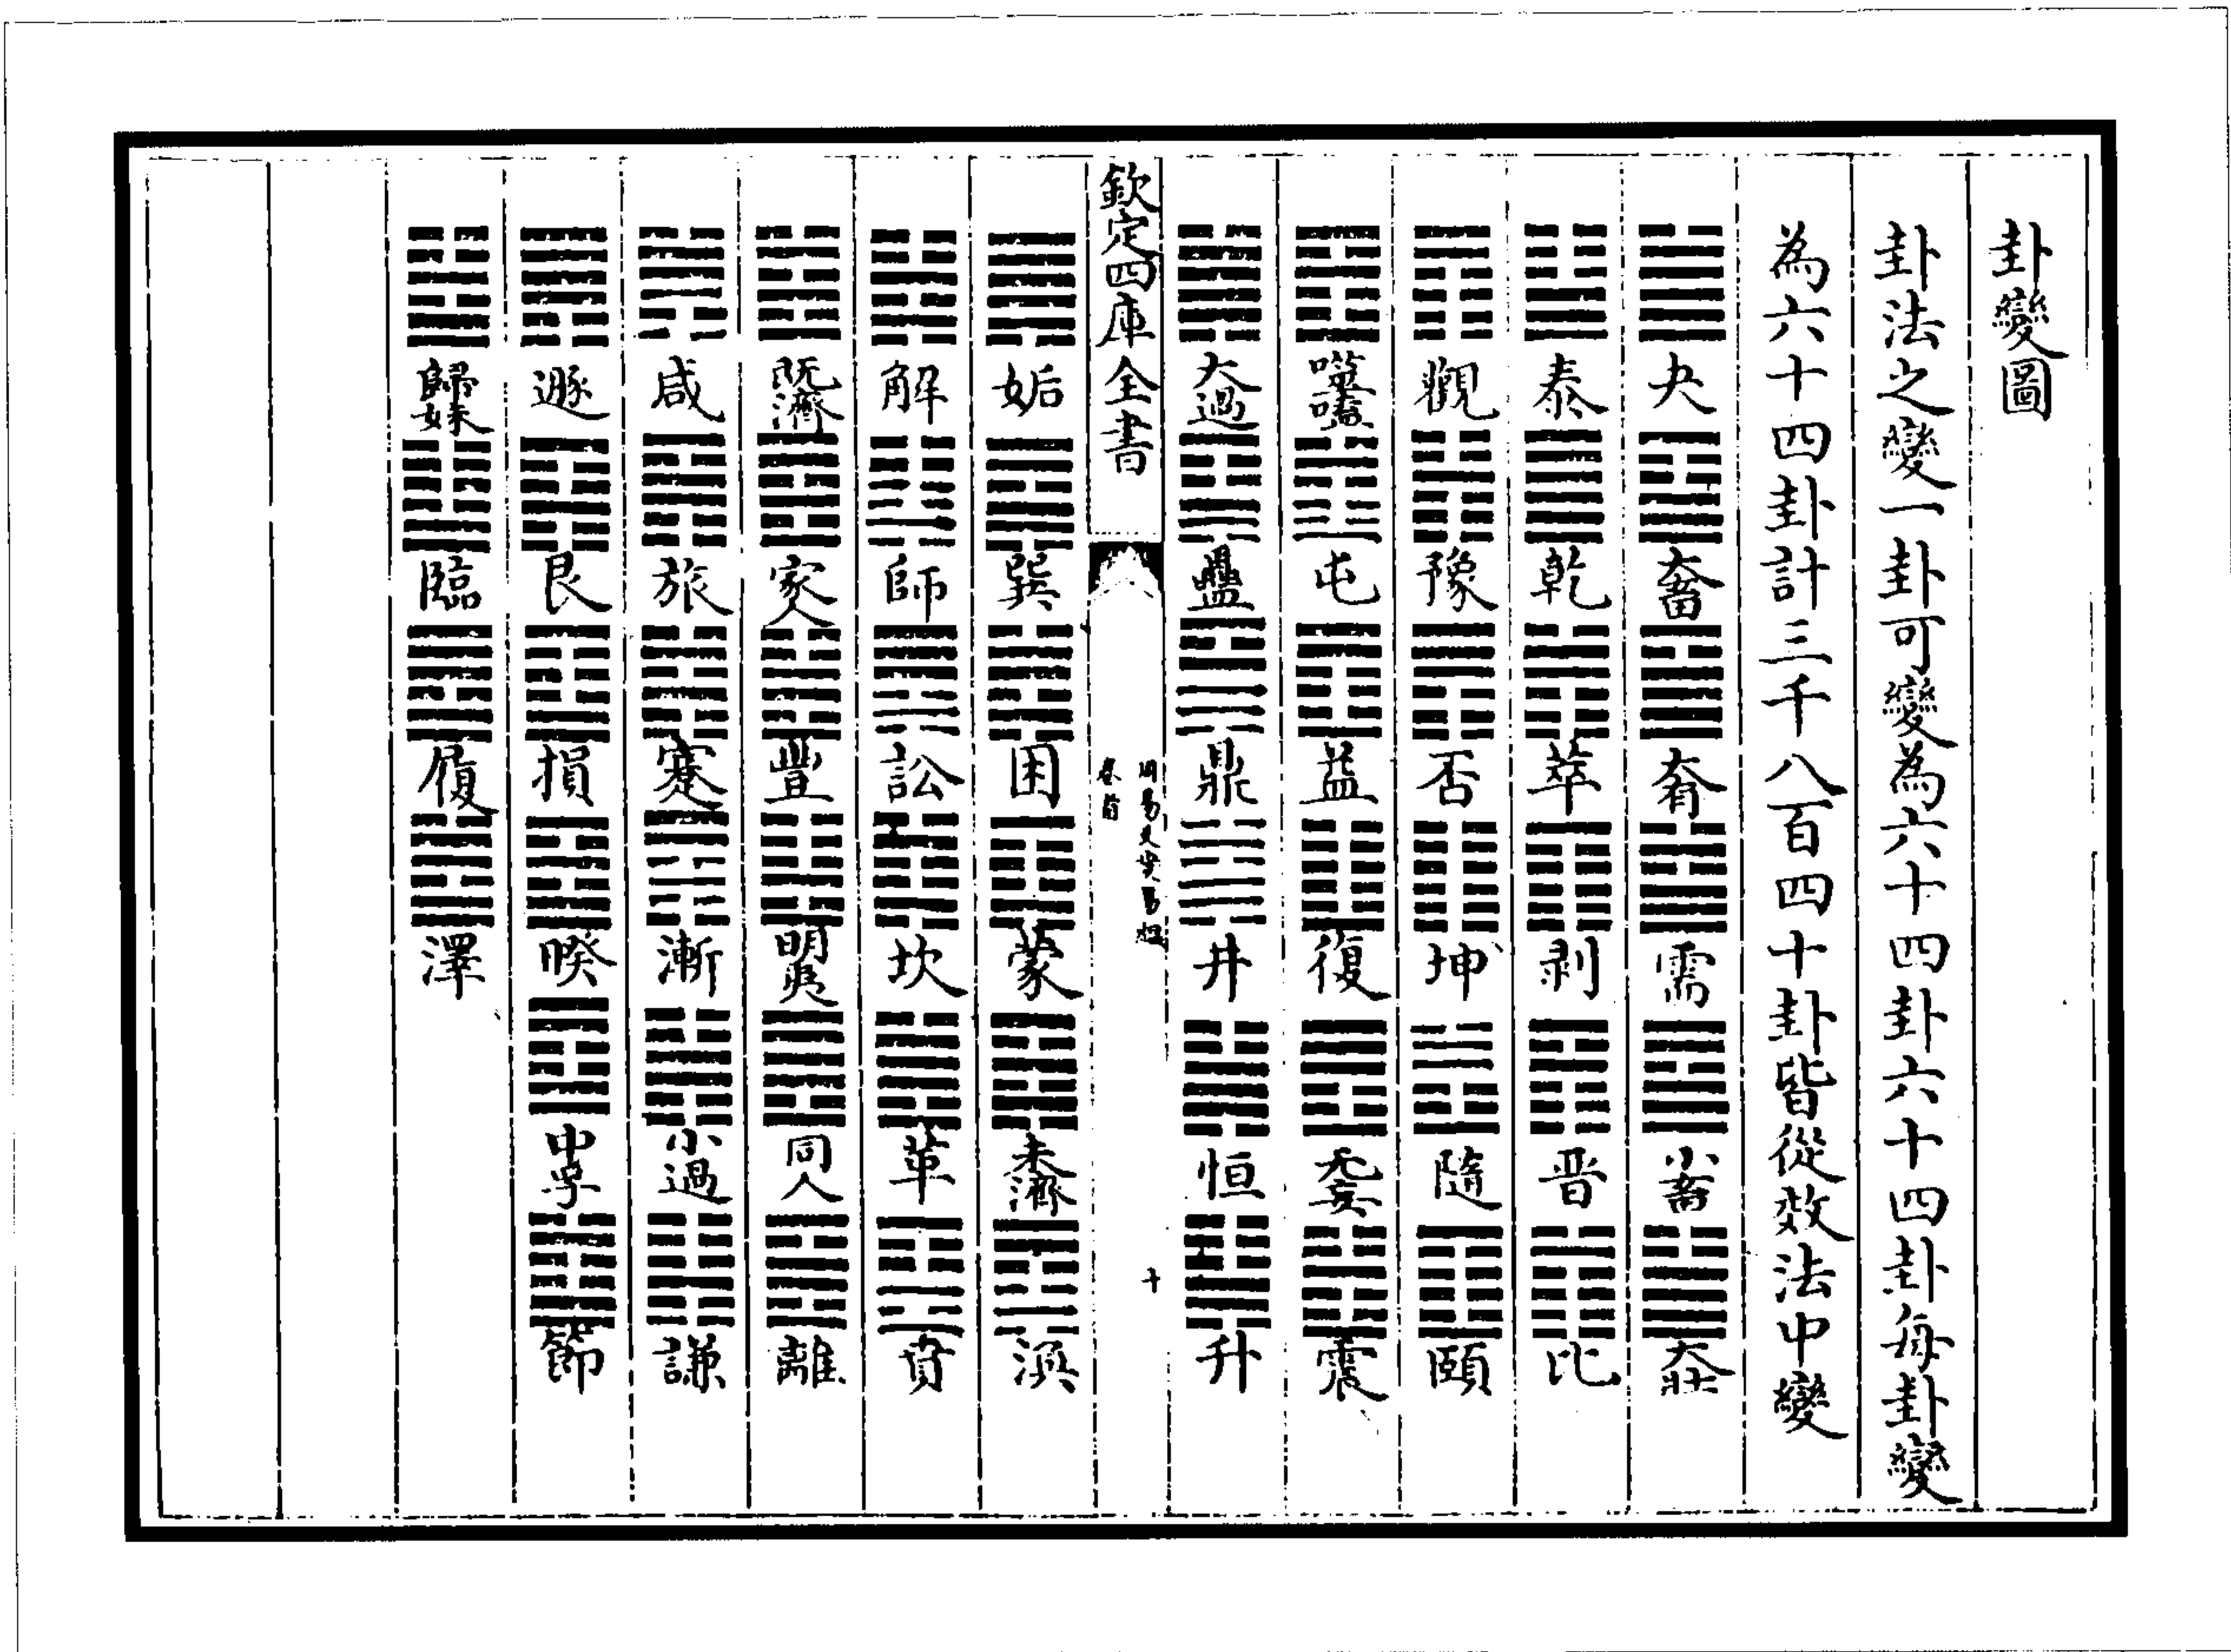 卦變圖
卦法之變一卦可變為六十四卦六十四卦每卦變
為六十四卦計三千八百四十卦皆從效法中變
夬 大畜 大有 需 小畜 大壯
泰 乾 萃 剥 晋 比
觀 豫 否 坤 隨 頤
噬嗑 屯 益 復 无妄 震
大過 蠱 鼎 井 恒 升
欽定四庫全書
卷首
十
姤 巽 困 蒙 未濟 渙
解 師 訟 坎 革 賁
既濟 家人 豐 明夷 同人 離
咸 旅 蹇 漸 小過 謙
遯 艮 損 暌 中孚 節
歸妹 臨 履 澤